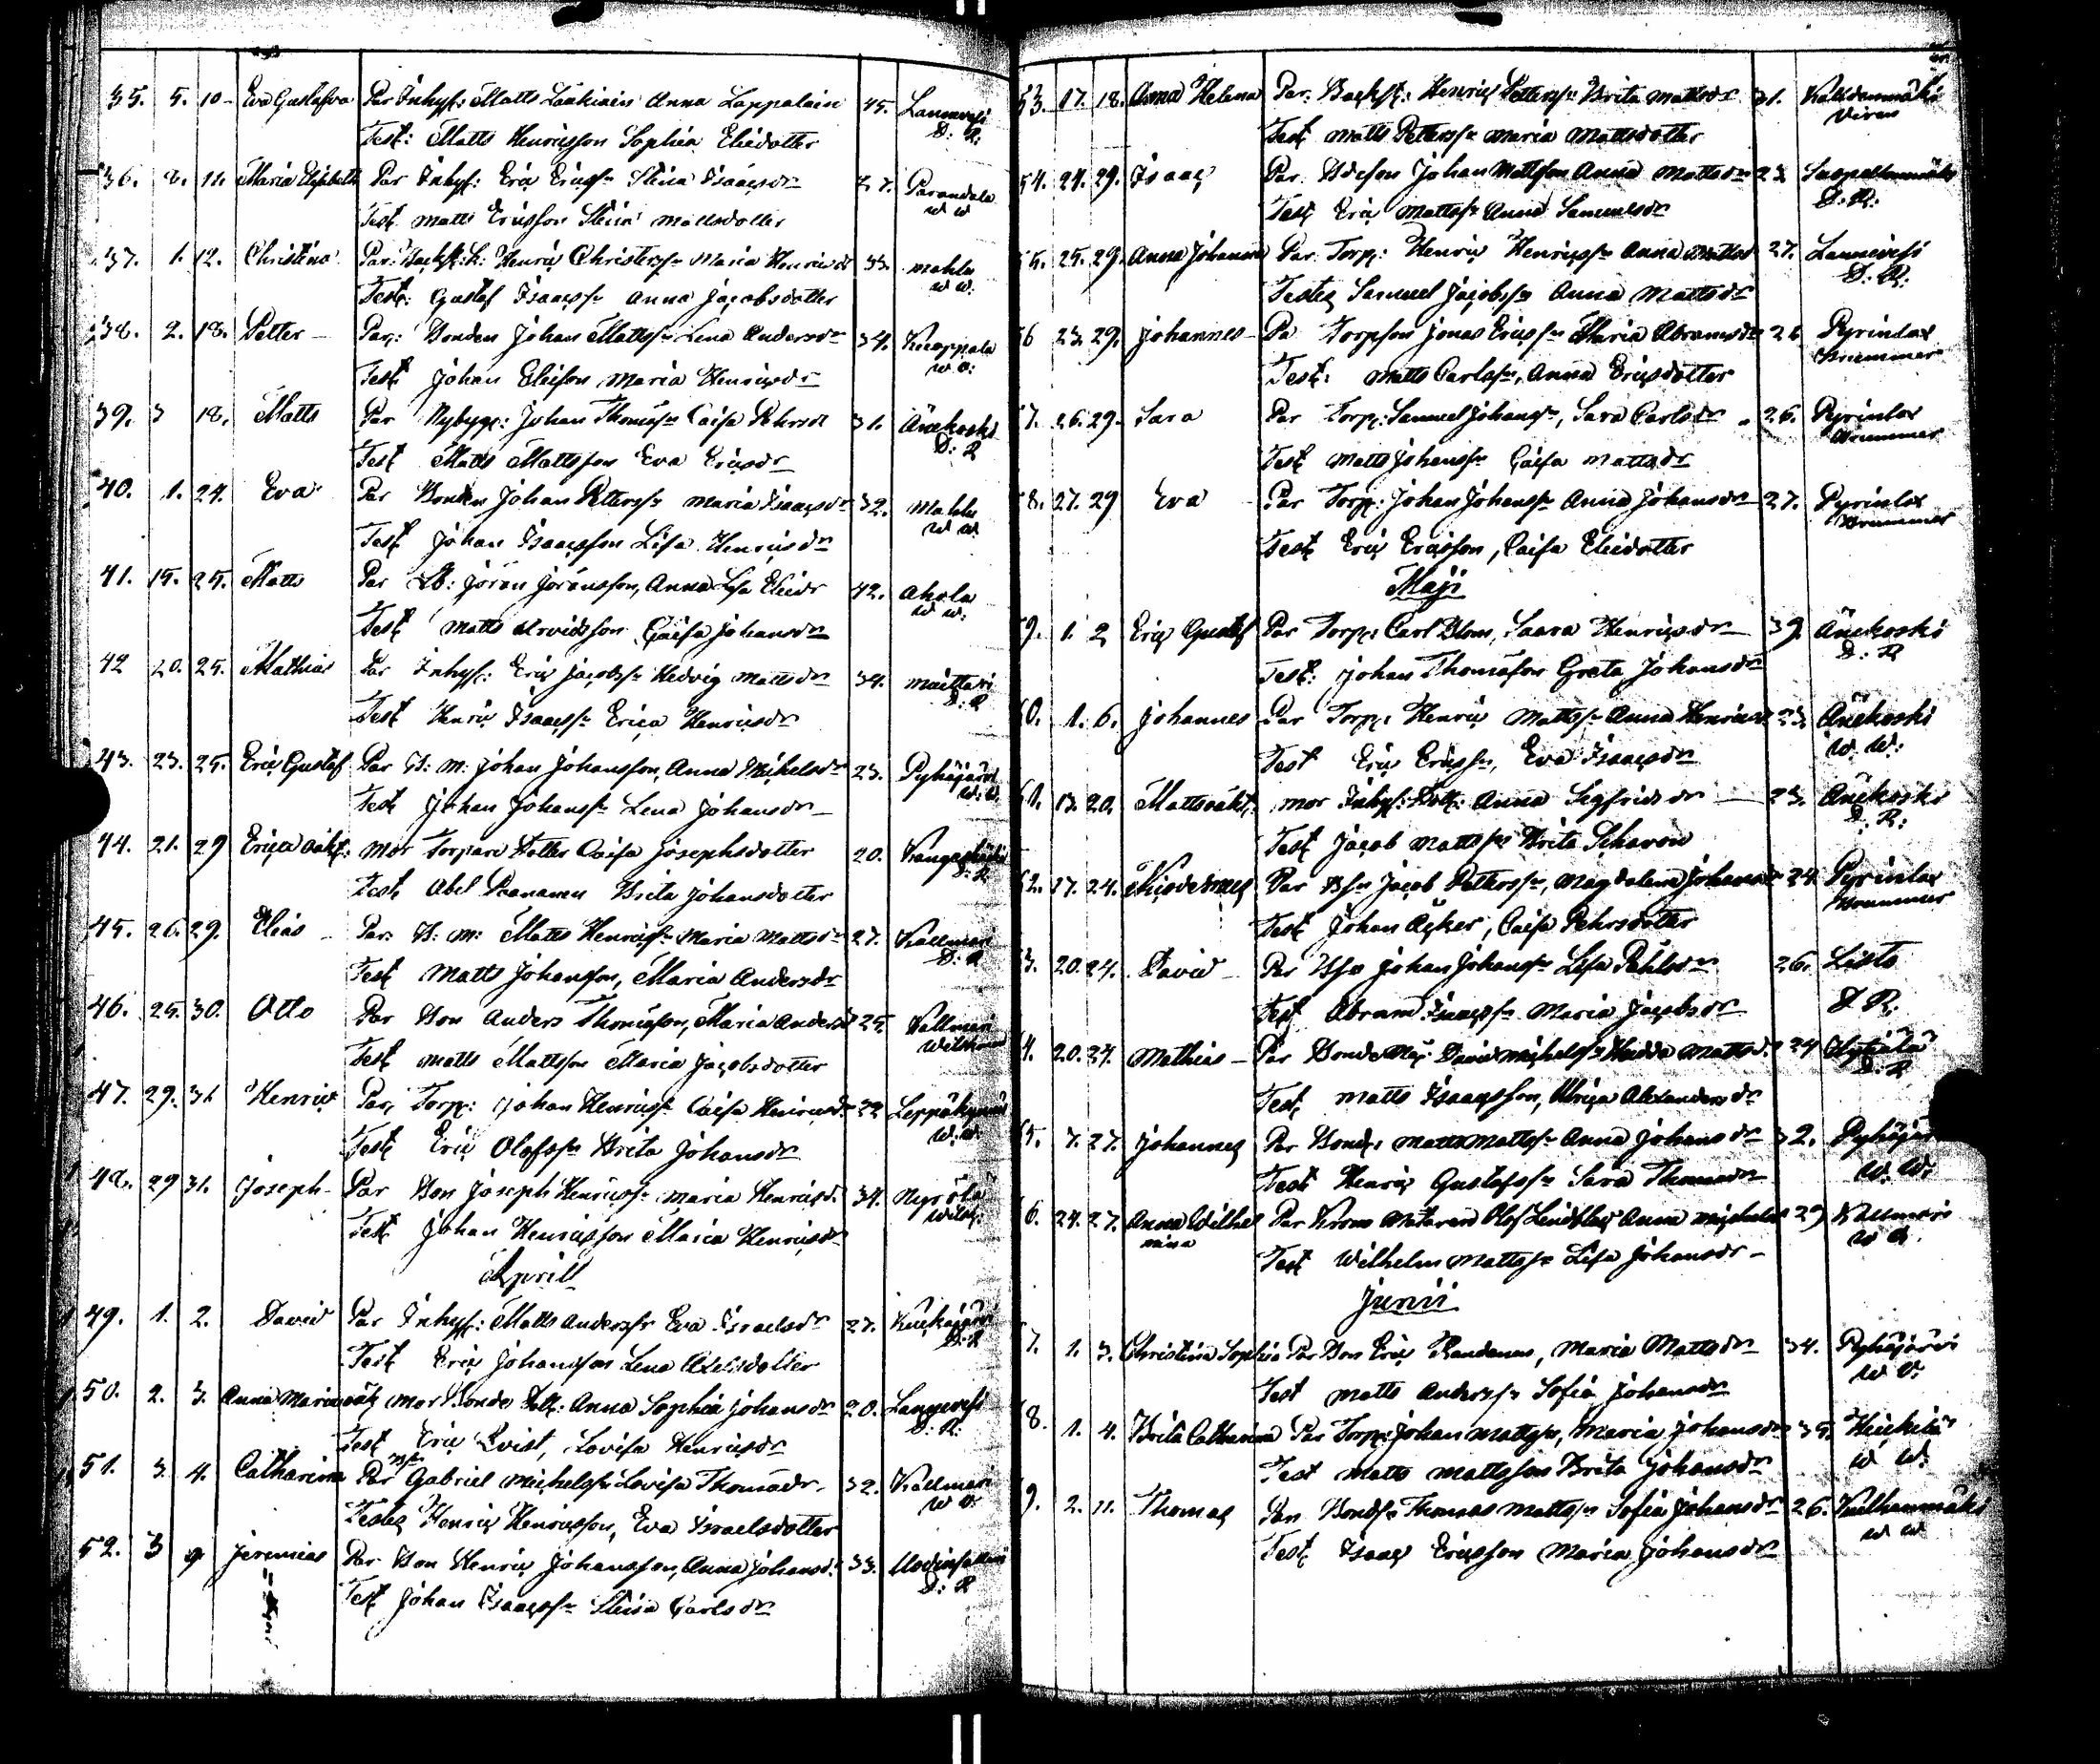 35. 5. 10 Eva Gustafva Par Inhys: Matts Laukiain Anna Lappalain 45. Lannevesi
Test: Matts Henricsson Sophia Eliedotter D: R:
36. 8. 11. Maria Elisabeth Par Inhys: Eric Ericss: Stina Isaacsdr 27. Parandala
Test. Matts Ericsson Stina Mattsdotter w w
37. 1. 12. Christina Par: Henric Christerss: Maria Henricsdr 33. Mahlu
Test: Gustaf Isaacss: Anna Jacobsdotter w w.
38. 2. 18. Petter Par: Bonden Johan Mattss: Lena Andersdr 34. Kuoppala
Test Johan Eliesson Maria Henricsdr
39. 3 18. Matts Par Nybygg: Johan Thomass: Caisa Pehrsdr 31. Änekoski
Test Matts Mattsson Eva Ericsdr D: R
40. 1. 24. Eva Par Bonden Johan Petterss: Maria Isaacsdr 32. Mahlu
Test Johan Isaacsson Lisa Henricsdr w w.
41. 15. 25. Matts Par Jöran Jöransson, Anna Lisa Eliedr 42. Ahola
Test Matts Arvidsson Caisa Johansdr w w.
42 20. 25. Mathias Par Inhys: Eric Jacobss: Hedvig Mattsdr 34.
Test Henric Isaacss: Erica Henricsdr D: R
43. 23. 25. Eric Gustaf Par B: M: Johan Johansson, Anna Michelsdr 23. Pyhäjärvi
Test Johan Johanss: Lena Johansdr w: w.
44. 21. 29 Erica oäkt: Mor Torpare Dotter Caisa Josephsdotter 20.
Test Abel Brita Johansdotter D: R
45. 26. 29. Elias Par: B: M: Matts Henricss: Maria Mattsdr 27. Kallmari
Test Matts Johansson, Maria Andersdr D: R
46. 25. 30. Otto Par Bon Anders Thomasson, Maria Andersdr 25. Kallmari
Test Matts Mattsson Maria Jacobsdotter
47. 29. 31 Henric Par Torp: Johan Henricss: Caisa Henricsdr
Test Eric Olofss: Brita Johansdr w. w.
48. 29 31. Joseph Par Bon Joseph Henricss: Maria Henricsdr. 34.
Test Johan Henricsson Maria Henricsdr
Aprill
49. 1. 2. David Par Inhys: Matts Anderss: Eva Israelsdr 27.
Test Eric Johansson Lena Axelsdotter D: R
50. 2. 3. Anna Maria oäkt Mor Bonde Dott: Anna Sophia Johansdr 20. Lannevesi
Test Eric Qvist, Lovisa Henricsdr D: R:
51. 3. 4. Catharina Par Gabriel Michelss: Lovisa Thomasdr 32. Kallmari
Testes Henric Henricsson, Eva Israelsdotter
52. 3 9. Jeremias Par Bon Henric Johansson, Anna Johansdr 33.
Test Johan Isaacss: Stina Carlsdr D: R
53. 17. 18. Anna Helena Par: Henric Petterss: Brita Mattsdr 31.
Test Matts Petterss: Maria Mattsdotter
54. 24. 29. Isaac Par. Johan Mattsson Anna Mattsdr
Test Eric Mattss: Anna Samuelsdr D: R:
55. 25. 29. Anna Johanna Par Torp: Henric Henricss: Anna Mattsdr 27. Lannevesi
Testes Samuel Jacobss: Anna Mattsdr D: R:
56 23. 29. Johannes Pa Torpson Jonas Ericss: Maria Abramsdr 26 Pyrinlax
Test: Matts Carlss:, Anna Ericsdotter Brummer
7. 26. 29. Sara Par Torp: Samuel Johanss:, Sara Carlsdr 26. Pyrinlax
Test Matts Johanss: Caisa Mattsdr Brummer
8. 27. 29 Eva Par Torp: Johan Johanss: Anna Johansdr 27. Pyrinlax
Test Eric Ericsson, Caisa Eliedotter Brummer
Maji
9. 1. 2 Eric Gustaf Par Torp: Carl Blom, Saara Henricsdr 39. Änekoski
Test: Johan Thomasson Greta Johansdr D: R
60. 1. 6. Johannes Par Torp: Henric Mattss: Anna Henricsdr 23. Änekoski
Test Eric Ericss:, Eva Isaacsdr w. w:
61. 13. 20. Matts oäkt: Mor Inhys: Dott: Anna Sigfridsdr 23. Änekoski
Test Jacob Mattss: Brita D: R:
62. 17. 24. Nicodemus Par Jacob Petterss:, Magdalena Johansdr 24 Pyrinlax
Test Johan Åker, Caisa Pehrsdotter Brummer
3. 20. 24. David Par Johan Johanss: Lisa Påhlsdr 26. Listo
Test Abram Isaacss: Maria Jacobsdr D R.
4. 20. 24. Mathias Par Bonde Måg David Michelss: Hedda Mattsdr 24
Test Matts Isaacsson, Ulrica Alexandersdr D: R
5. 7. 27. Johannes Par Bond: Matts Mattss: Anna Johansdr 32.
Test Henric Gustafss: Sara Thomasdr w. w.
6. 24. 27. Anna Wilhel Par Olof Anna Michelsdr 29 Kallmari
mina Test Wilhelm Mattss: Lisa Johansdr
Junii
7. 1. 3. Christina Sophia Par Bon Eric Randanen, Maria Mattsdr 34. Pyhäjärvi
Test Matts Anderss: Sofia Johansdr
8. 1. 4. Brita Catharina Par Torp: Johan Mattss:, Maria Johansdr 35. Hiekila
Test Matts Mattsson Brita Johansdr w w.
9. 2. 11. Thomas Par Bonds: Thomas Mattss: Sofia Johansdr 26.
Test Isaac Ericsson Maria Johansdr w w